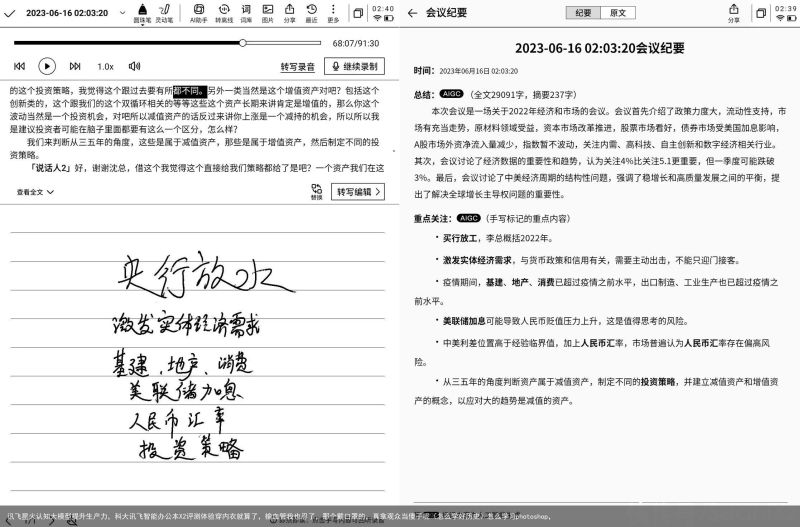 2023-06-16 02:03:20
圆珠笔
灵动笔
AI助手
转离线
词库
图片
分享
最近
更多
02:40
68:07/91:30
1.0x
转写录音
继续录制
的这个投资策略，我觉得这个跟过去要有所都不同。另外一类当然是这个增值资产对吧？包括这个
创新类的，这个跟我们的这个双循环相关的等等这些这个资产长期来讲肯定是增值的，那么你这个
波动当然是一个投资机会，对吧所以减值资产的话反过来讲你上涨是一个减持的机会，所以所以我
是建议投资者可能在脑子里面都要有这么一个区分，怎么样？
我们来判断从三五年的角度，这些是属于减值资产，那些是属于增值资产，然后制定不同的投
资策略。
「说话人2」好，谢谢沈总，借这个我觉得这个直接给我们策略都给了是吧？一个资产我们在这
查看全文
替换
转写编辑
央行放水
激发实体经济需求
基建、地产、消费
美联储加息
人民币汇率
投资策略
会议纪要
纪要
原文
分享
02:39
2023-06-16 02:03:20会议纪要
时间：2023年06月16日 02:03:20
总结：AIGC（全文29091字，摘要237字）
本次会议是一场关于2022年经济和市场的会议。会议首先介绍了政策力度大，流动性支持，市
场有充当走势，原材料领域受益，资本市场改革推进，股票市场看好，债券市场受美国加息影响，
A股市场外资净流入量减少，指数暂不波动，关注内需、高科技、自主创新和数字经济相关行业。
其次，会议讨论了经济数据的重要性和趋势，认为关注4%比关注5.1更重要，但一季度可能跌破
3%。最后，会议讨论了中美经济周期的结构性问题，强调了稳增长和高质量发展之间的平衡，提
出了解决全球增长主导权问题的重要性。
重点关注：AIGC（手写标记的重点内容）
• 买行放工，李总概括2022年。
• 激发实体经济需求，与货币政策和信用有关，需要主动出击，不能只迎门接客。
• 疫情期间，基建、地产、消费已超过疫情之前水平，出口制造、工业生产也已超过疫情之
前水平。
• 美联储加息可能导致人民币贬值压力上升，这是值得思考的风险。
• 中美利差位置高于经验临界值，加上人民币汇率，市场普遍认为人民币汇率存在偏高风
险。
• 从三五年的角度判断资产属于减值资产，制定不同的投资策略，并建立减值资产和增值资
产的概念，以应对大的趋势是减值的资产。
讯飞星火认知大模型提升生产力，科大讯飞智能办公本X2评测体验穿内衣就算了，输血管我也忍了，那个戴口罩的，真拿观众当傻子呢（怎么学好历史）怎么学习photoshop，